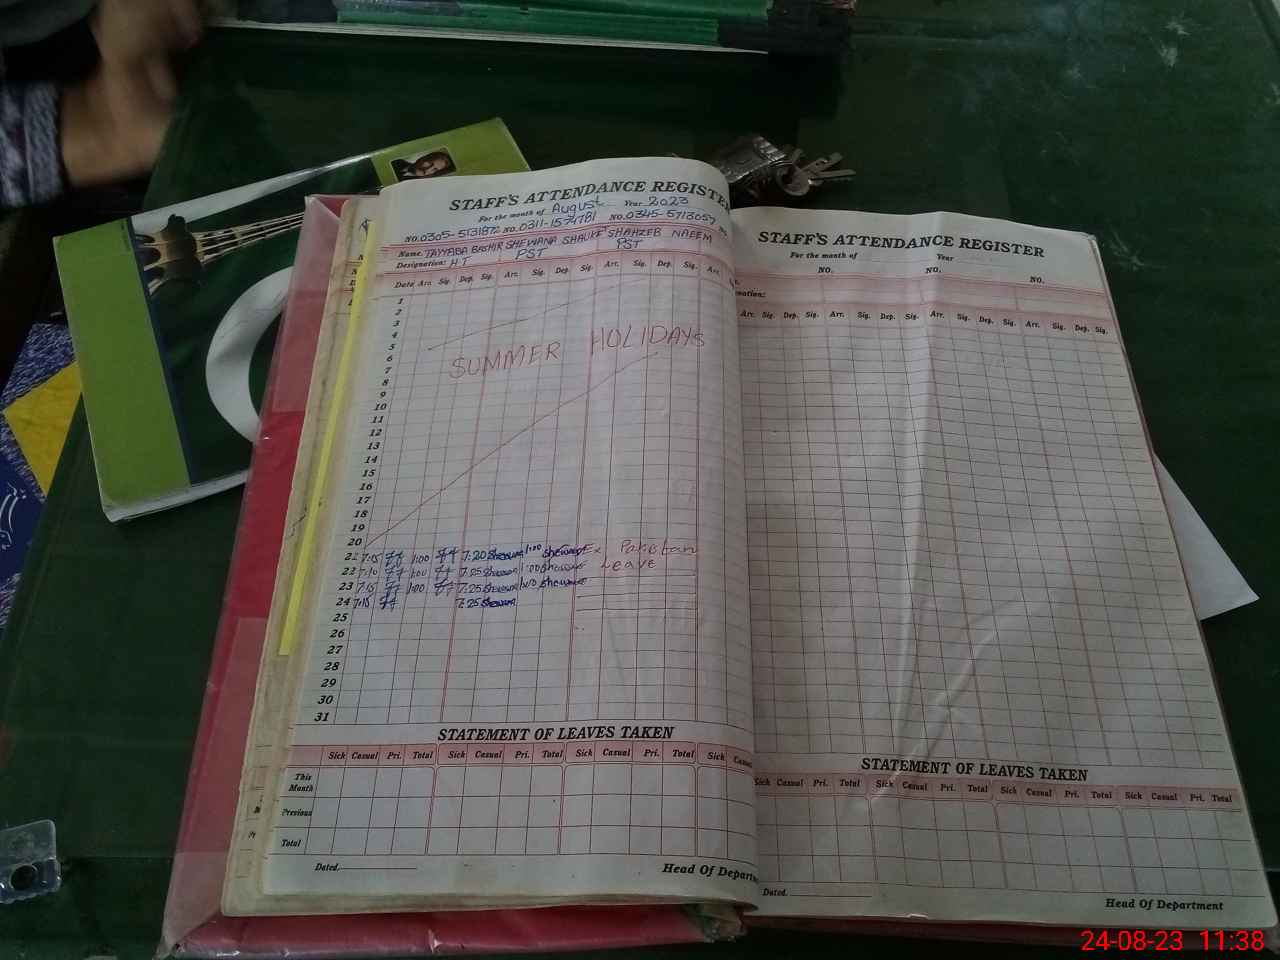 STAFF'S ATTENDANCE REGISTER
For the month of August Year 2023
NO. 0305-5131872 NO. 0311-1574781 NO. 0345-5713057 NO.
Name. TAYYABA BASHIR SHEWANA SHAUKT SHAHZEB NAEEM
Designation: H.T PST PST
Date Arr. Sig. Dep. Sig. Arr. Sig. Dep. Sig. Arr. Sig. Dep. Sig. Arr.
1
2
3
4
5
SUMMER HOLIDAYS
6
7
8
9
10
11
12
13
14
15
16
17
18
19
20
21 7:15 1:00 7:20 Shewana 1:00 Shewana Ex Pakistan
22 7:10 1:00 7:25 Shewana 1:00 Shewana Leave
23 7:15 1:00 7:25 Shewana 1:00 Shewana
24 7:15 7:25 Shewana
25
26
27
28
29
30
31
STATEMENT OF LEAVES TAKEN
Sick Casual Pri. Total Sick Casual Pri. Total Sick Casual Pri. Total Sick Casual
This Month
Previous
Total
Dated.
Head Of Department
STAFF'S ATTENDANCE REGISTER
For the month of Year
NO. NO. NO.
nation:
Arr. Sig. Dep. Sig. Arr. Sig. Dep. Sig. Arr. Sig. Dep. Sig. Arr. Sig. Dep. Sig.
STATEMENT OF LEAVES TAKEN
Sick Casual Pri. Total Sick Casual Pri. Total Sick Casual Pri. Total Sick Casual Pri. Total
Dated.
Head Of Department
24-08-23 11:38